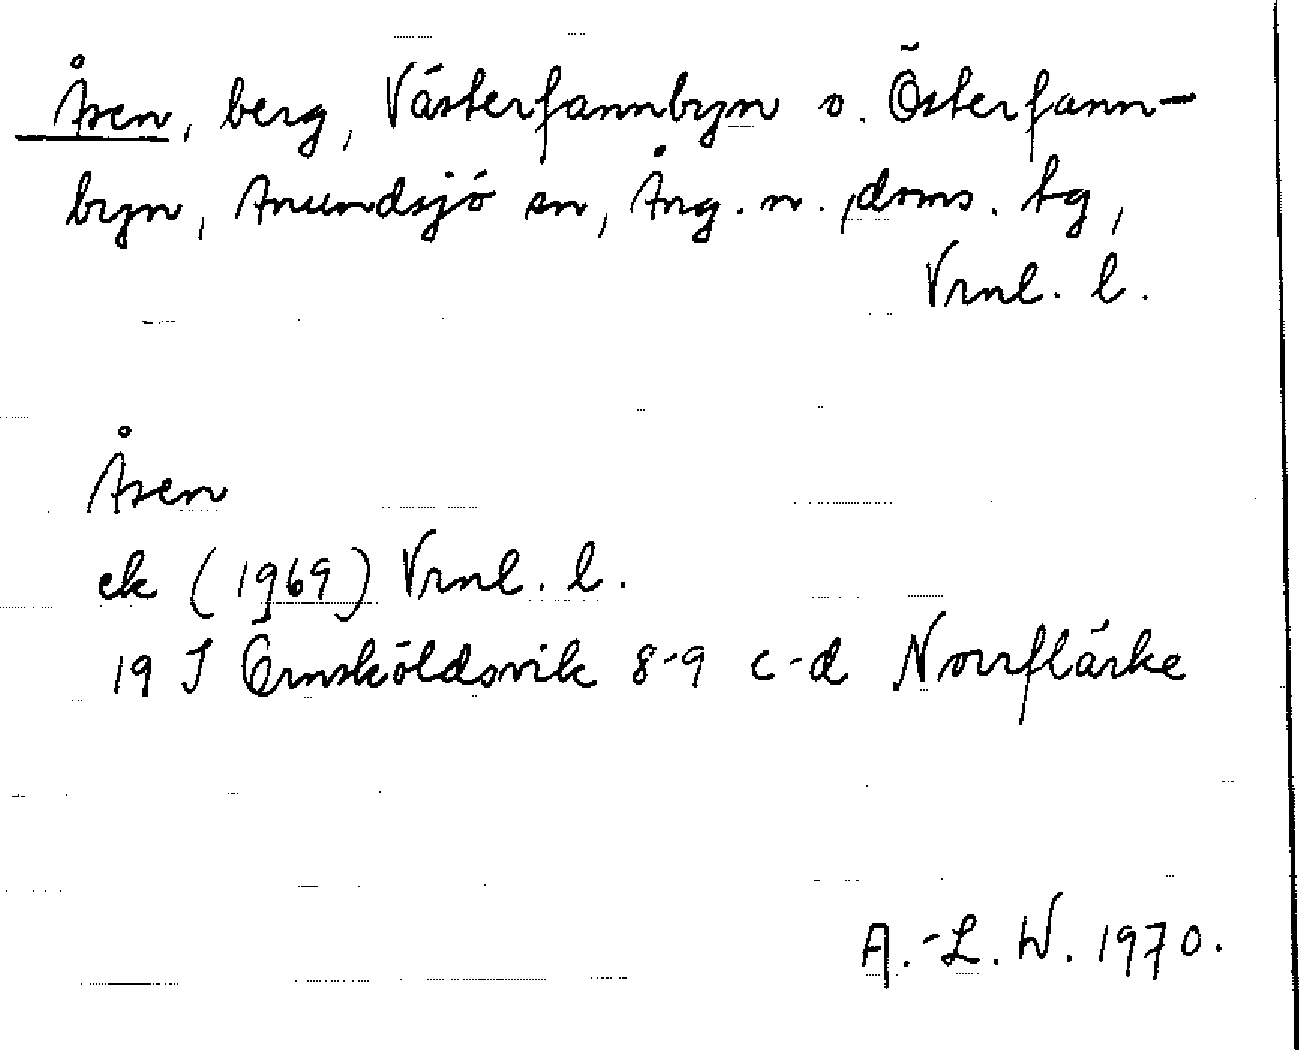 Åsen, berg, Västerfannbyn o. Österfann-
byn, Anundsjö sn, Ång. n. doms. tg,
Vrnl. l.
Åsen
ek (1969) Vrnl. l.
19 J Örnsköldsvik 8-9 c-d Norrflärke
A.-L. W. 1970.